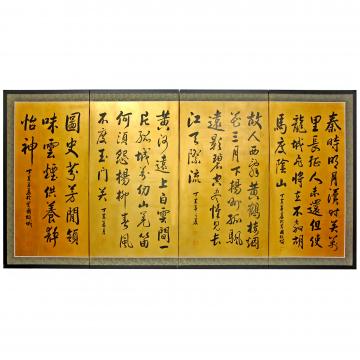 秦時明月漢时关萬
里長征人未還但使
龍城飛將在不教胡
馬度陰山
故人西辞黄鶴樓烟
花三月下揚州孤帆
遠影碧空盡惟見長
江天際流
黄河遠上白雲間一
片孤城万仞山羌笛
何須怨楊柳春風
不度玉门关
圖史芬芳閒領
味雲煙供養静
怡神